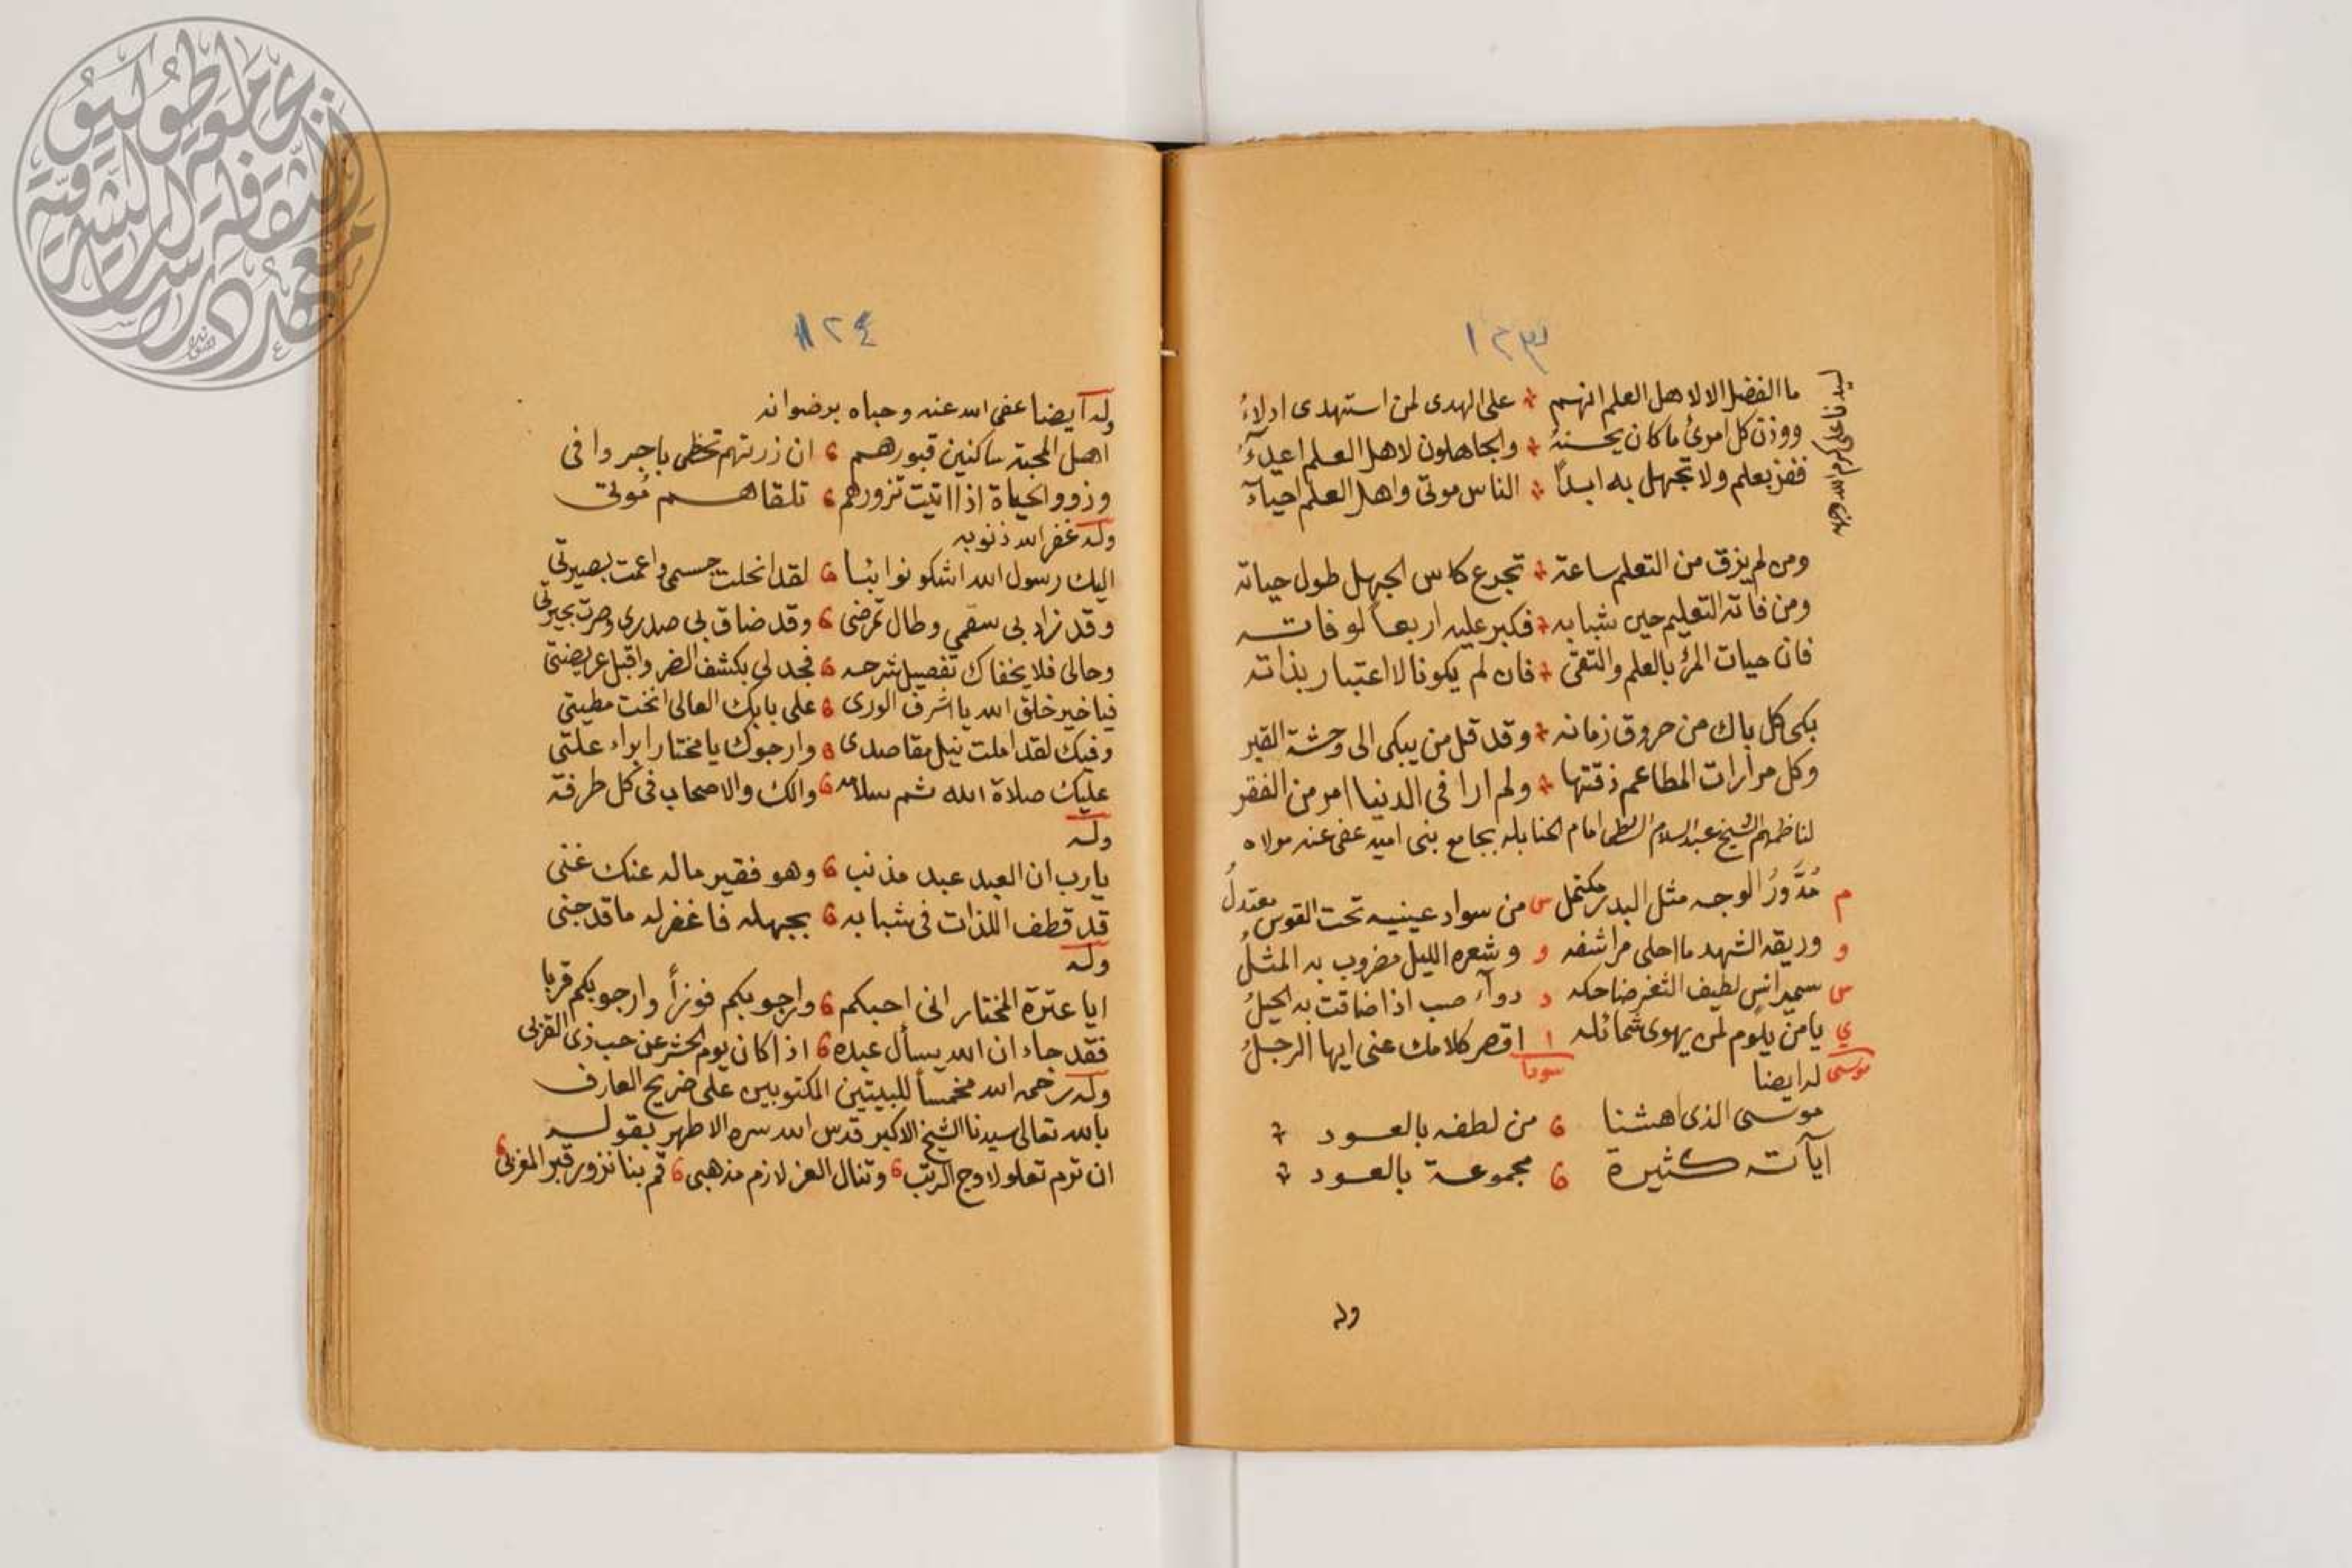 ١٢٣
ما الفضل الا لاهل العلم انهم * على الهدى لمن استهدى ادلاءُ
ووزن كل امرئ ما كان يحسنهُ * والجاهلون لاهل العلم اعدآءُ
ففز بعلم ولا تجهل به ابداً * الناس موتى واهل العلم احيآءُ
لسيدنا علي كرم الله وجهه
ومن لم يذق من التعلم ساعة * تجرع كاس الجهل طول حياته
ومن فاته التعليم حين شبابه * فكبر عليه اربعاً لوفاته
فان حيات المرء بالعلم والتقى * فان لم يكونا لا اعتبار بذاته
بكى كل باك من حروق زمانه * وقد قل من يبكى الى وحشة القبر
وكل مرارات المطاعم ذقتها * ولم ارا فى الدنيا امر من الفقر
لناظمهم الشيخ عبد السلام الشطى امام الحنابله بجامع بنى اميه عفى عنه مولاه
م مُدَّورُ الوجه مثل البدر مكتمل س من سواد عينيه تحت القوس معتدلُ
و وريقه الشهد ما احلى مراشفه و وشعره الليل مضروب به المثلُ
س سمير انسٍ لطيف الثغر ضاحكه د دوآء صب اذا ضاقت به الحيلُ
ي يا من يلوم لمن يهوى شمائله ا اقصر كلامك عنى ايها الرجلُ
موسى له ايضا
موسى الذى اهشنا ؟ من لطفه بالعود
آياته كثيرة ؟ مجموعة بالعود
وله
١٢٤
وله ايضا عفى الله عنه وحباه برضوانه
اهل المحبة ساكنين قبورهم ؟ ان زرتهم تحظى باجر وافى
وذوو الحياة اذا اتيت تزورهم ؟ تلقاهم مُوتى
وله غفر الله ذنوبه
اليك رسول الله اشكو نوائبا ؟ لقد انحلت جسمى واعمت بصيرتى
وقد زاد بى سقمي وطال تمرضى ؟ وقد ضاق بى صدرى وصرت بحيرتى
وحالى فلا يخفاك تفصيل شرحه ؟ فجد لى بكشف الضر واقبل عريضتى
فيا خير خلق الله يا اشرف الورى ؟ على بابك العالى انخت مطيتى
وفيك لقد املت نيل مقاصدى ؟ وارجوك يا مختار ابراء علتى
عليك صلاة الله ثم سلامه ؟ والك والاصحاب فى كل طرفة
وله
يارب ان العبد عبد مذنب ؟ وهو فقير ماله عنك غنى
قد قطف اللذات فى شبابه ؟ بجهله فاغفر له ما قد جنى
وله
ايا عترة المختار انى احبكم ؟ وارجو بكم فوزاً وارجو بكم قربا
فقد جاء ان الله يسأل عبده ؟ اذا كان يوم الحشر عن حب ذى القربى
وله رحمه الله مخمساً للبيتين المكتوبين على ضريح العارف
بالله تعالى سيدنا الشيخ الاكبر قدس الله سره الاطهر بقوله
ان ترم تعلو لاوج الرتب ؟ وتنال العز لازم مذهبى ؟ قم بنا نزور قبر المغربى